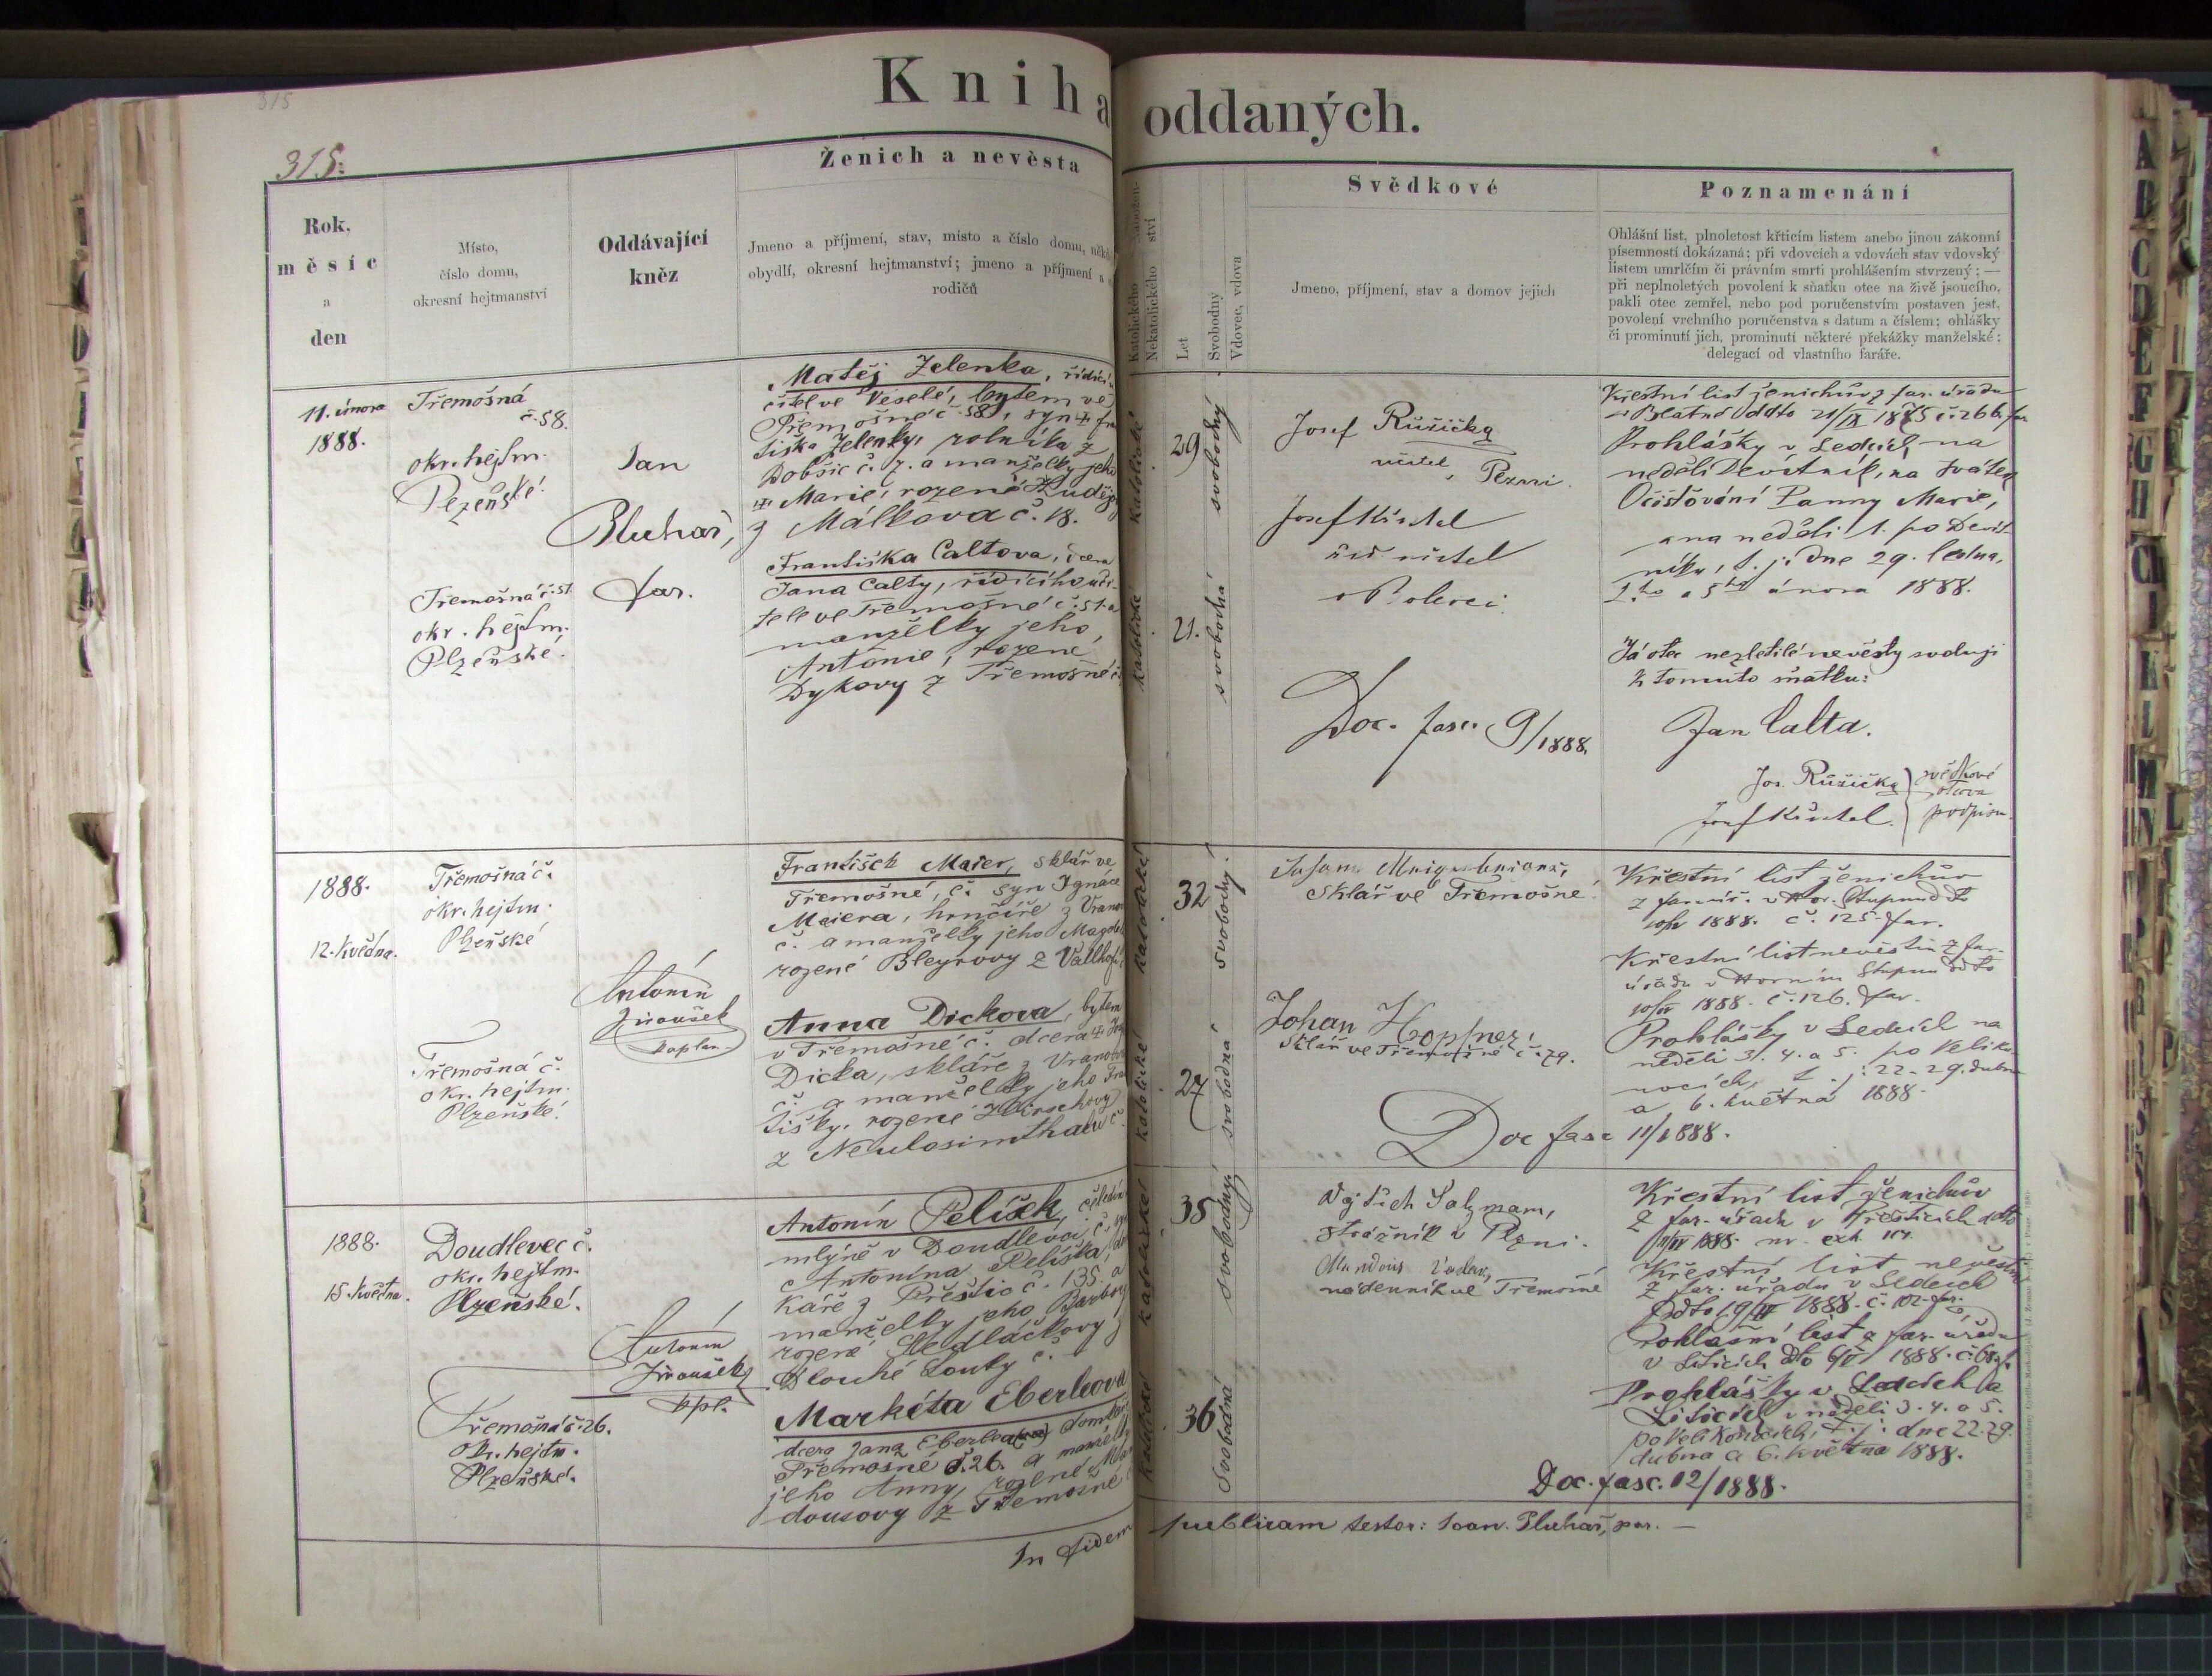 315
Kniha oddaných.
315:
Ženich a nevěsta
Rok,
měsíc
a
den
Místo,
číslo domu,
okresní hejtmanství
Oddávající
kněz
Jmeno a příjmení, stav, místo a číslo domu, někd
obydlí, okresní hejtmanství; jmeno a příjmení a
rodičů
Katolického
Nekatolického
ství
Let
Svobodny
Vdovec, vdova
Svědkové
Jmeno, příjmení, stav a domov jejich
Poznamenání
Ohlášní list, plnoletost křticím listem anebo jinou zákonní
písemností dokázaná; při vdovcích a vdovách stav vdovský
listem umrlčím či právním smrti prohlášením stvrzený; —
při neplnoletých povolení k sňatku otce na živě jsoucího,
pakli otec zemřel, nebo pod poručenstvím postaven jest,
povolení vrchního poručenstva s datum a číslem; ohlášky
či prominutí jich, prominutí některé překážky manželské;
delegací od vlastního faráře.
11. února
1888.
Třemošná
č. 58.
okr. hejtm.
Plzeňské.
Třemošná č. 51.
okr. hejtm.
Plzeňské.
Jan
Pluhař,
far.
Matěj Zelenka, řídící
učitel ve Veselé, bytem ve
Třemošné č. 58, syn + Fran
tiška Zelenky, rolníka z
Dobšic č. 7. a manželky jeho
+ Marie, rozené
z Málkova č. 18.
Františka Caltova, dcera
Jana Calty, řídícího uči-
tele ve Třemošné č. 51. a
manželky jeho,
Antonie, rozené
Dykovy z Třemošné č.
katolické
katolické
29
21.
svobodný
svobodná
Josef Růžička
učitel, Plzni.
Josef Kůstel
říd učitel
v Bolevci
Doc. fasc. 9/1888.
Křestní list ženichův z far. úřadu
v Blatné ddto 21/IX 1875 č. 266. far
Prohlášky v Ledcích na
neděli Devítník, na svátek
Očišťování Panny Marie,
a na neděli 1. po Devít-
níku, t. j. dne 29. ledna,
2.ho a 5ho února 1888.
Já otec nezletilé nevěsty svoluji
k tomuto sňatku:
Jan Calta.
Jos. Růžička
Josef Kůstel.
svědkové
otcova
podpisu.
1888.
12. května.
Třemošná č.
okr. hejtm.
Plzeňské
Třemošná č.
okr. hejtm.
Plzeňské.
Antonín
Jiroušek
kaplan
František Maier, sklář ve
Třemošné, č. syn Ignáce
Maiera, hrnčíře z Vranov
č. a manželky jeho Magdal
rozené Bleyrovy z Vallhof
Anna Dickova, bytem
v Třemošné č. dcera +
Dicka, skláře z Vranov
č. a manželky jeho Fran
tišky, rozené Hirschovy
z Neulosimthalu č.
katolické
katolické
32
27
svobodný
svobodná
sklář ve Třemošné
Johan Hopfner,
sklář ve Třemošné č. 79.
Doc fasc 11/1888.
Křestní list ženichův
z far. úř. v Hor. Stupnu ddto
1888. č. 125. far.
Křestní list nevěstin z far.
úřadu v Horním Stupnu ddto
1888. č. 126. far.
Prohlášky v Ledcích na
neděli 3. 4. a 5. po Veliko-
nocích, t. j. 22. 29. dubna
a 6. května 1888.
1888.
15. května.
Doudlevec č.
okr. hejtm.
Plzeňské.
Třemošná č. 26.
okr. hejtm.
Plzeňské.
Antonín
Jiroušek
kpl.
Antonín Pelíšek, čeledín
mlýně v Doudlevci, č. syn
Antonína Pelíška,
káře z Přeštic č. 135. a
manželky jeho Barbory
rozené Sedláčkovy z
Dlouhé Louky č.
Markéta Eberleova
dcera Jana Eberlea, domkáře
Třemošné č. 26. a manželky
jeho Anny, rozené Man
dousovy z Třemošné
katolické
katolické
35
36
svobodný
svobodná
Vojtěch Salzmam,
strážník v Plzni.
Mandous Václav,
nádenník ve Třemošné
Křestní list ženichův
z far. úřadu v Přešticích ddto
1888. nr. exh 114.
Křestní list nevěstin
z far. úřadu v Ledcích
ddto 19/IV 1888. č. 102. far.
Prohlašní list z far. úřadu
v Liticích dto 6/V 1888. č. 68. f.
Prohlášky v Ledcích a
Liticích v neděli 3. 4. a 5.
po Velikonocích, t. j. dne 22. 29.
dubna a 6. května 1888.
Doc. fasc. 12/1888.
In fidem publicam testor: Joan. Pluhař, par. —